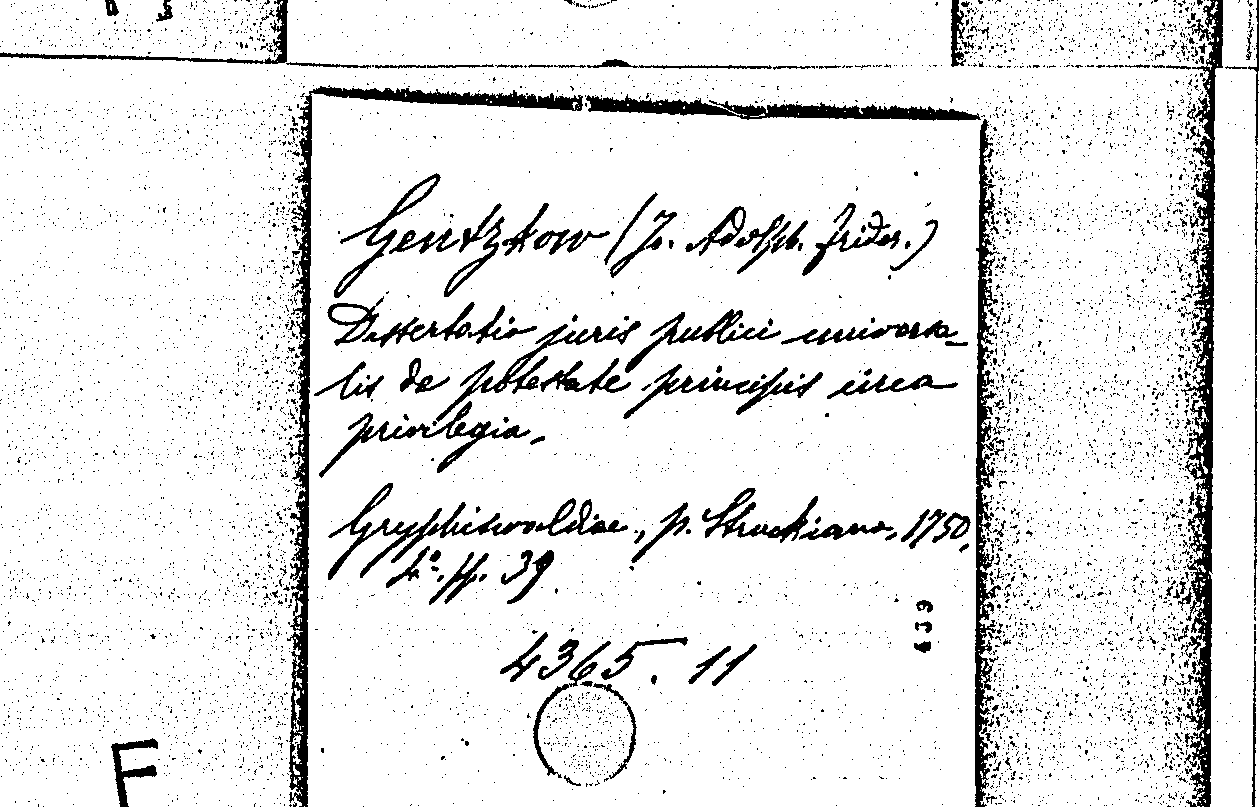 Gentzkow (Jo. Adolph. Frider.)
Dissertatio juris publici universa-
lis de potestate principis circa
privilegia.
Gryphiswaldiae, p. Struckiano, 1750,
4°. pp. 39
4365. 11
639
F